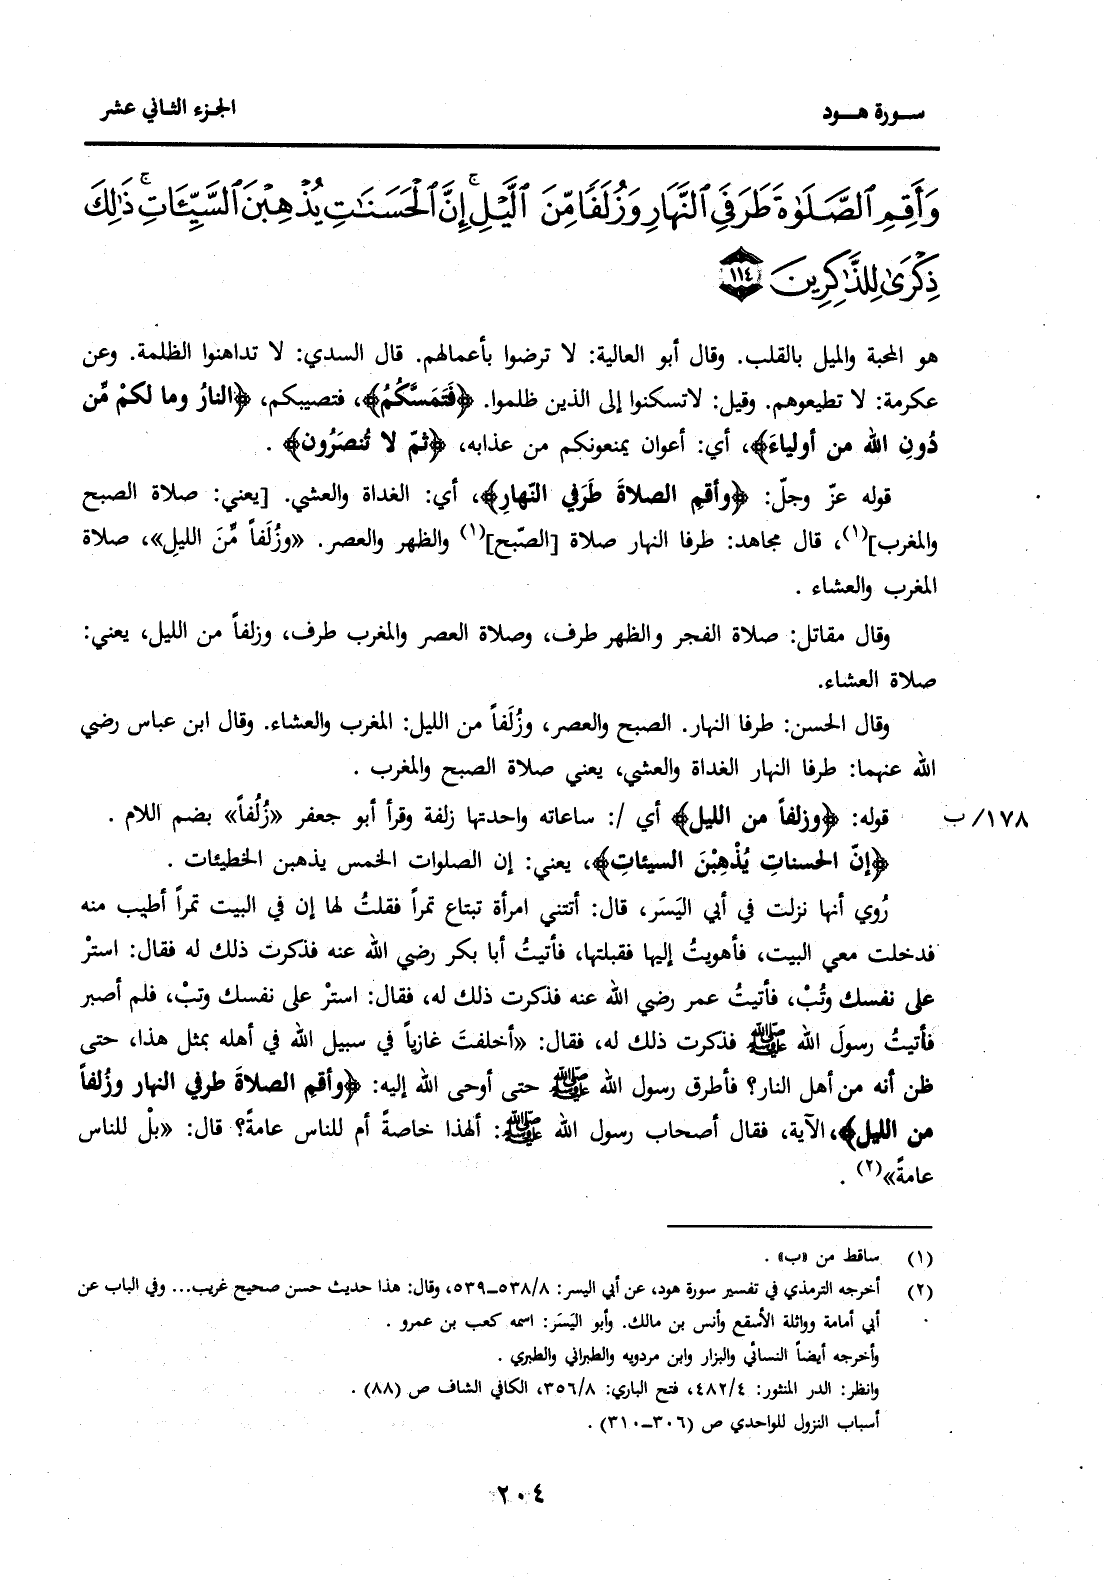 سورة هود
الجزء الثاني عشر
وَأَقِمِ ٱلصَّلَوٰةَ طَرَفَيِ ٱلنَّهَارِ وَزُلَفًا مِّنَ ٱلَّيْلِ ۚ إِنَّ ٱلْحَسَنَٰتِ يُذْهِبْنَ ٱلسَّيِّـَٔاتِ ۚ ذَٰلِكَ
ذِكْرَىٰ لِلذَّٰكِرِينَ ١١٤
هو المحبة والميل بالقلب. وقال أبو العالية: لا ترضوا بأعمالهم. قال السدي: لا تداهنوا الظلمة. وعن
عكرمة: لا تطيعوهم. وقيل: لاتسكنوا إلى الذين ظلموا. ﴿فَتَمَسَّكُمُ﴾، فتصيبكم، ﴿النارُ وما لكمْ مِّن
دُونِ الله من أولياءَ﴾، أي: أعوان يمنعونكم من عذابه، ﴿ثمّ لا تُنصَرُون﴾ .
قوله عزّ وجلّ: ﴿وأقمِ الصلاةَ طَرَفي النّهارِ﴾، أي: الغداة والعشي. [يعني: صلاة الصبح
والمغرب](١)، قال مجاهد: طرفا النهار صلاة [الصّبح](١) والظهر والعصر. «وزُلَفاً مِّنَ الليلِ»، صلاة
المغرب والعشاء .
وقال مقاتل: صلاة الفجر والظهر طرف، وصلاة العصر والمغرب طرف، وزلفاً من الليل، يعني:
صلاة العشاء.
وقال الحسن: طرفا النهار. الصبح والعصر، وزُلَفاً من الليل: المغرب والعشاء. وقال ابن عباس رضي
الله عنهما: طرفا النهار الغداة والعشي، يعني صلاة الصبح والمغرب .
قوله: ﴿وزلفاً من الليل﴾ أي /: ساعاته واحدتها زلفة وقرأ أبو جعفر «زُلُفاً» بضم اللام .
١٧٨/ب
﴿إنّ الحسناتِ يُذْهِبْنَ السيئاتِ﴾، يعني: إن الصلوات الخمس يذهبن الخطيئات .
رُوي أنها نزلت في أبي اليَسَر، قال: أتتني امرأة تبتاع تمراً فقلتُ لها إن في البيت تمراً أطيب منه
فدخلت معي البيت، فأهويتُ إليها فقبلتها، فأتيتُ أبا بكر رضي الله عنه فذكرت ذلك له فقال: استرْ
على نفسك وتُبْ، فأتيتُ عمر رضي الله عنه فذكرت ذلك له، فقال: استرْ على نفسك وتبْ، فلم أصبر
فأتيتُ رسولَ الله ﷺ فذكرت ذلك له، فقال: «أخلفتَ غازياً في سبيل الله في أهله بمثل هذا، حتى
ظن أنه من أهل النار؟ فأطرق رسول الله ﷺ حتى أوحى الله إليه: ﴿وأقمِ الصلاةَ طرفي النهار وزُلفاً
من الليل﴾، الآية، فقال أصحاب رسول الله ﷺ: ألهذا خاصةً أم للناس عامةً؟ قال: «بلْ للناس
عامةً»(٢) .
(١) ساقط من «ب» .
(٢) أخرجه الترمذي في تفسير سورة هود، عن أبي اليسر: ٥٣٨/٨ــ٥٣٩، وقال: هذا حديث حسن صحيح غريب... وفي الباب عن
أبي أمامة وواثلة الأسقع وأنس بن مالك. وأبو اليَسَر: اسمه كعب بن عمرو .
وأخرجه أيضاً النسائي والبزار وابن مردويه والطبراني والطبري .
وانظر: الدر المنثور: ٤٨٢/٤، فتح الباري: ٣٥٦/٨، الكافي الشاف ص (٨٨) .
أسباب النزول للواحدي ص (٣٠٦ــ٣١٠) .
٢٠٤